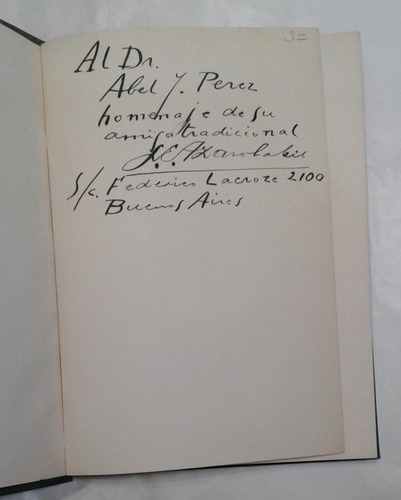 3=
Al Dr.
Abel J. Perez
homenaje de su
amigo tradicional
L. E. Azarola Gil
S/c. Federico Lacroze 2100
Buenos Aires